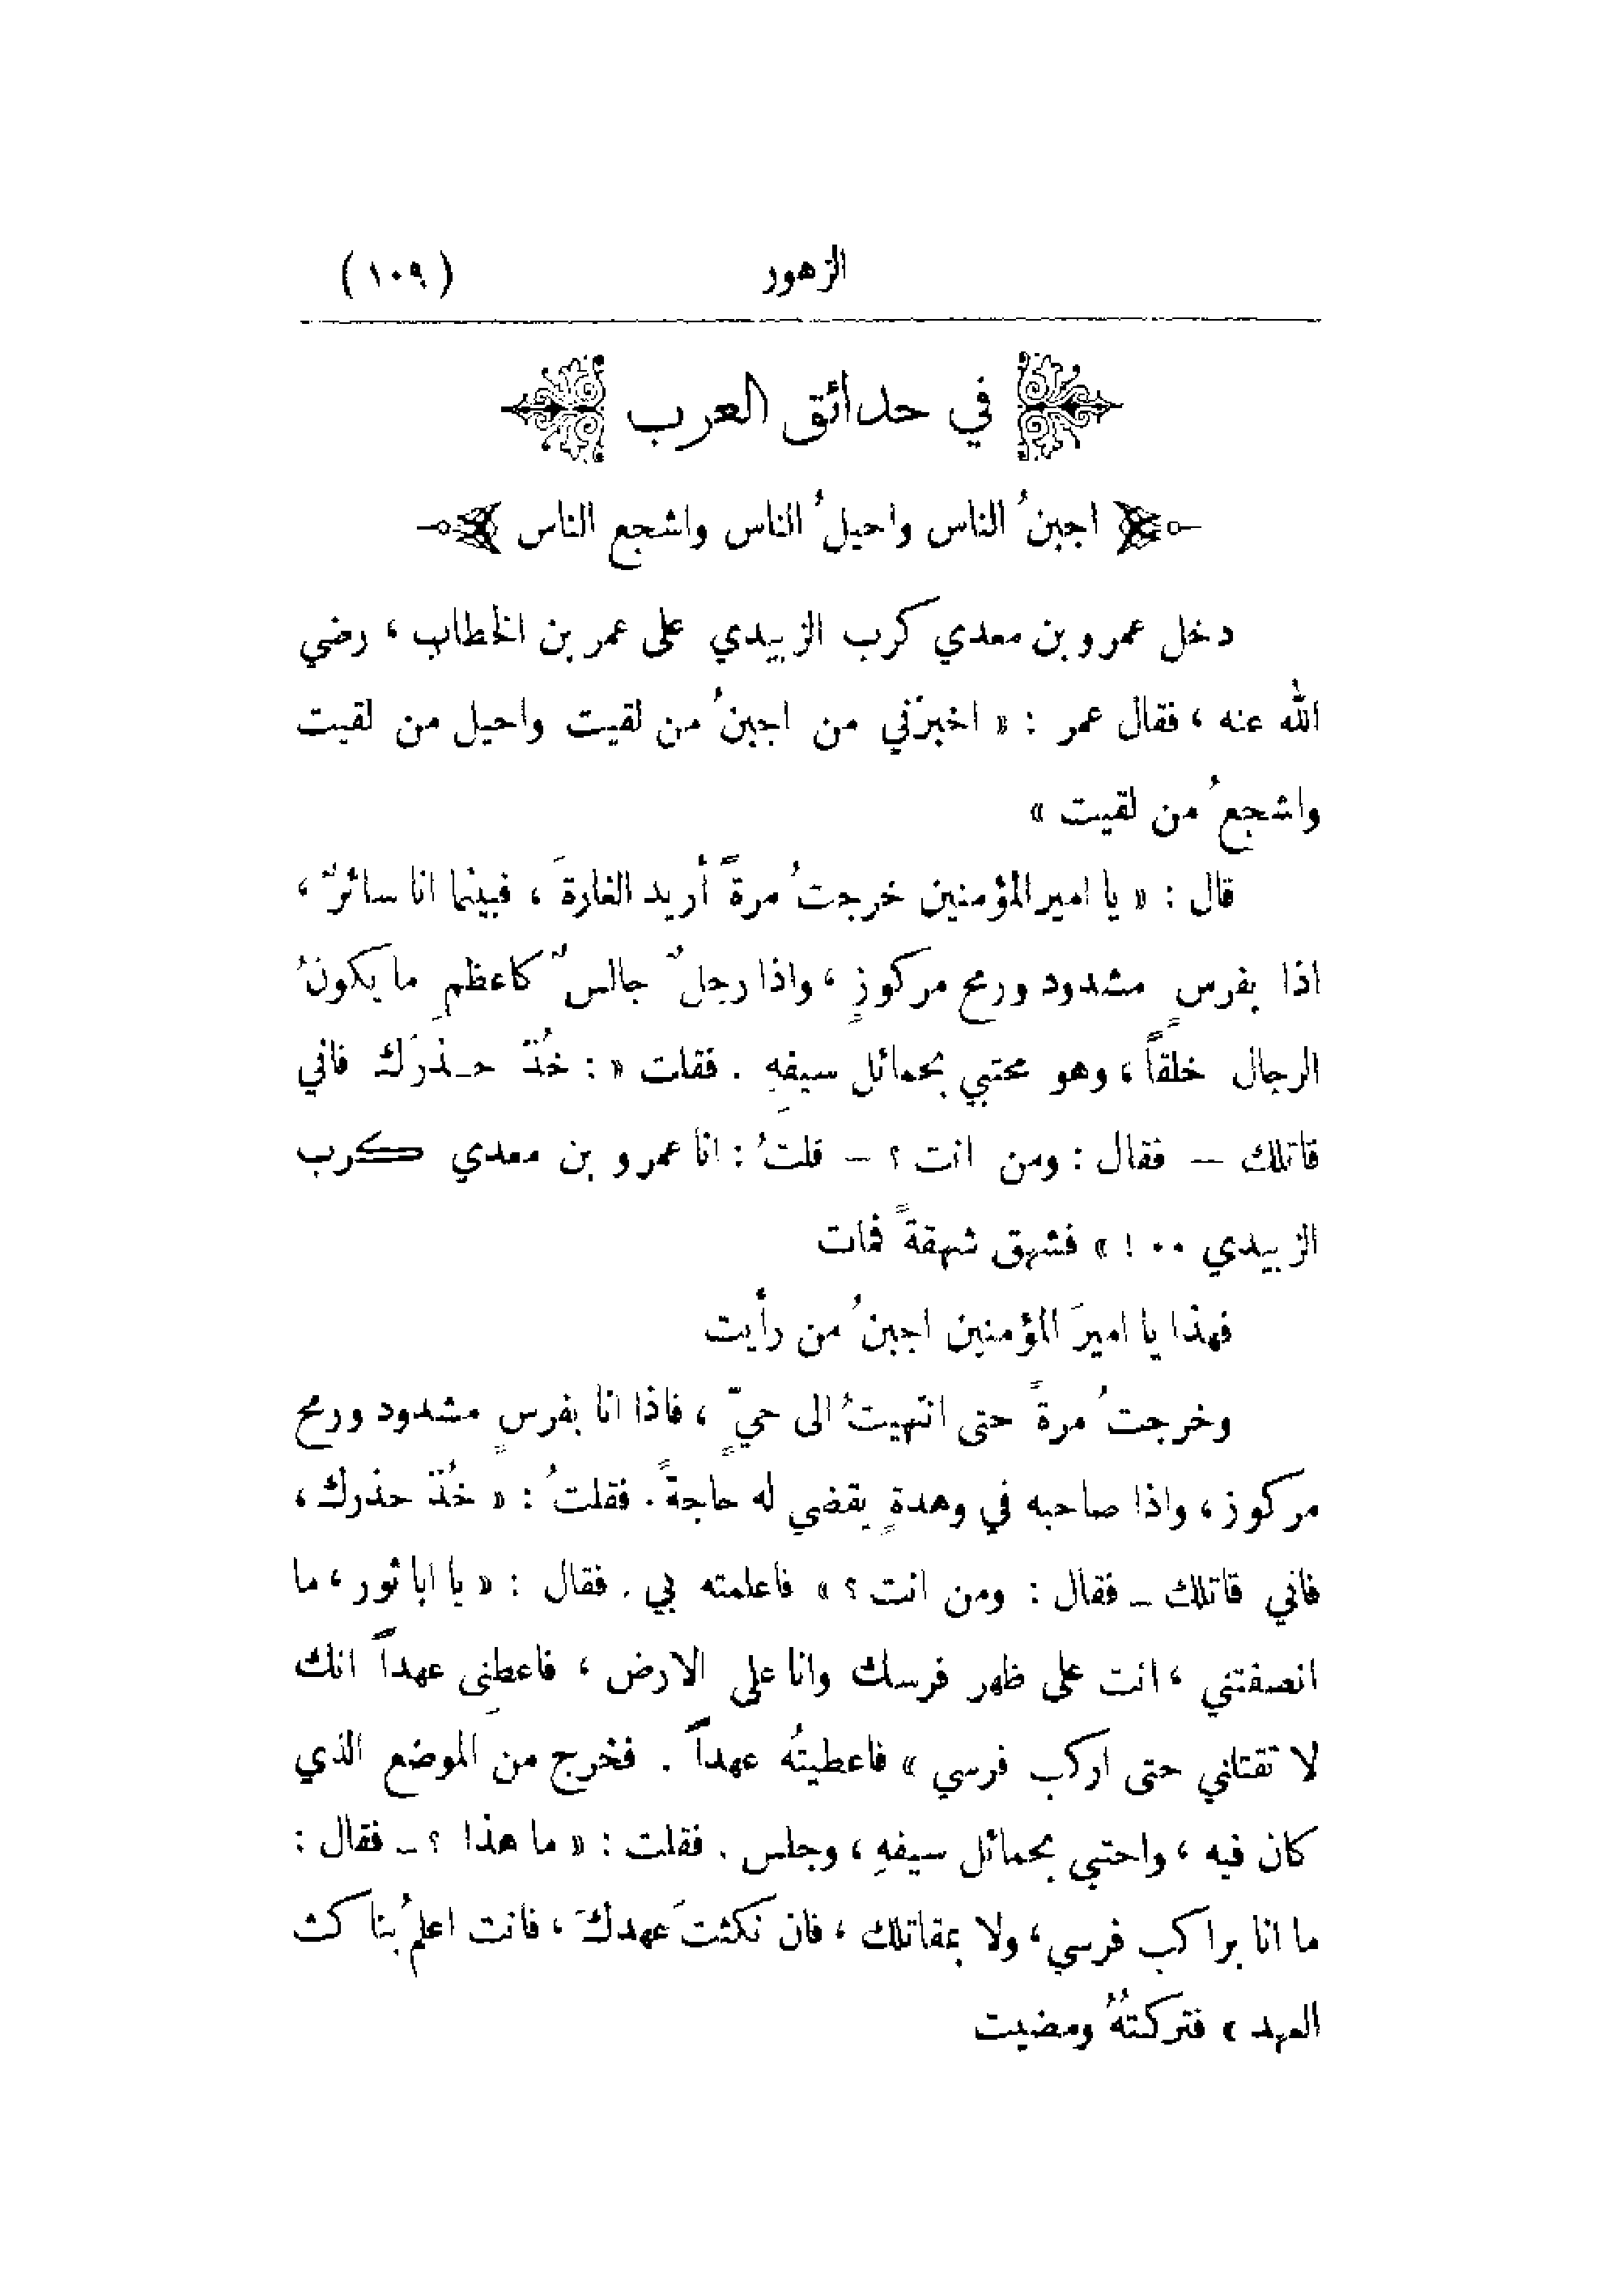 الزهور (١٠٩)
في حدائق العرب
اجبنُ الناس واحيلُ الناس واشجع الناس
دخل عمرو بن معدي كرب الزبيدي على عمر بن الخطاب ، رضي
الله عنه ، فقال عمر : « اخبرْني من اجبنُ من لقيت واحيل من لقيت
واشجعُ من لقيت »
قال : « يا امير المؤمنين خرجتُ مرةً أريد الغارةَ ، فبينما انا سائرٌ ،
اذا بفرسٍ مشدود ورمح مركوزٍ ، واذا رجلٌ جالسٌ كاعظمِ ما يكونُ
الرجال خلقاً ، وهو محتبي بحمائل سيفهِ . فقلت « : خُذْ حـذرَك فاني
قاتلك – فقال : ومن انت ؟ – قلتُ : انا عمرو بن معدي كرب
الزبيدي ٠٠ ! » فشهق شهقةً فمات
فهذا يا اميرَ المؤمنين اجبنُ من رأيت
وخرجتُ مرةً حتى انتهيتُ الى حيٍّ ، فاذا انا بفرسٍ مشدود ورمح
مركوز ، واذا صاحبه في وهدةٍ يقضي له حاجةً . فقلتُ : « خُذْ حذرك ،
فاني قاتلك – فقال : ومن انت ؟ » فاعلمته بي . فقال : « يا ابا ثور ، ما
انصفتني ، انت على ظهر فرسك وانا على الارض ، فاعطِني عهداً انك
لا تقتلني حتى اركب فرسي » فاعطيتُه عهداً . فخرج من الموضع الذي
كان فيه ، واحتبي بحمائل سيفهِ ، وجلس . فقلت : « ما هذا ؟ – فقال :
ما انا براكب فرسي ، ولا بمقاتلك ، فان نكثتَ عهدكَ ، فانت اعلمُ بناكث
العهد » فتركتُهُ ومضيت